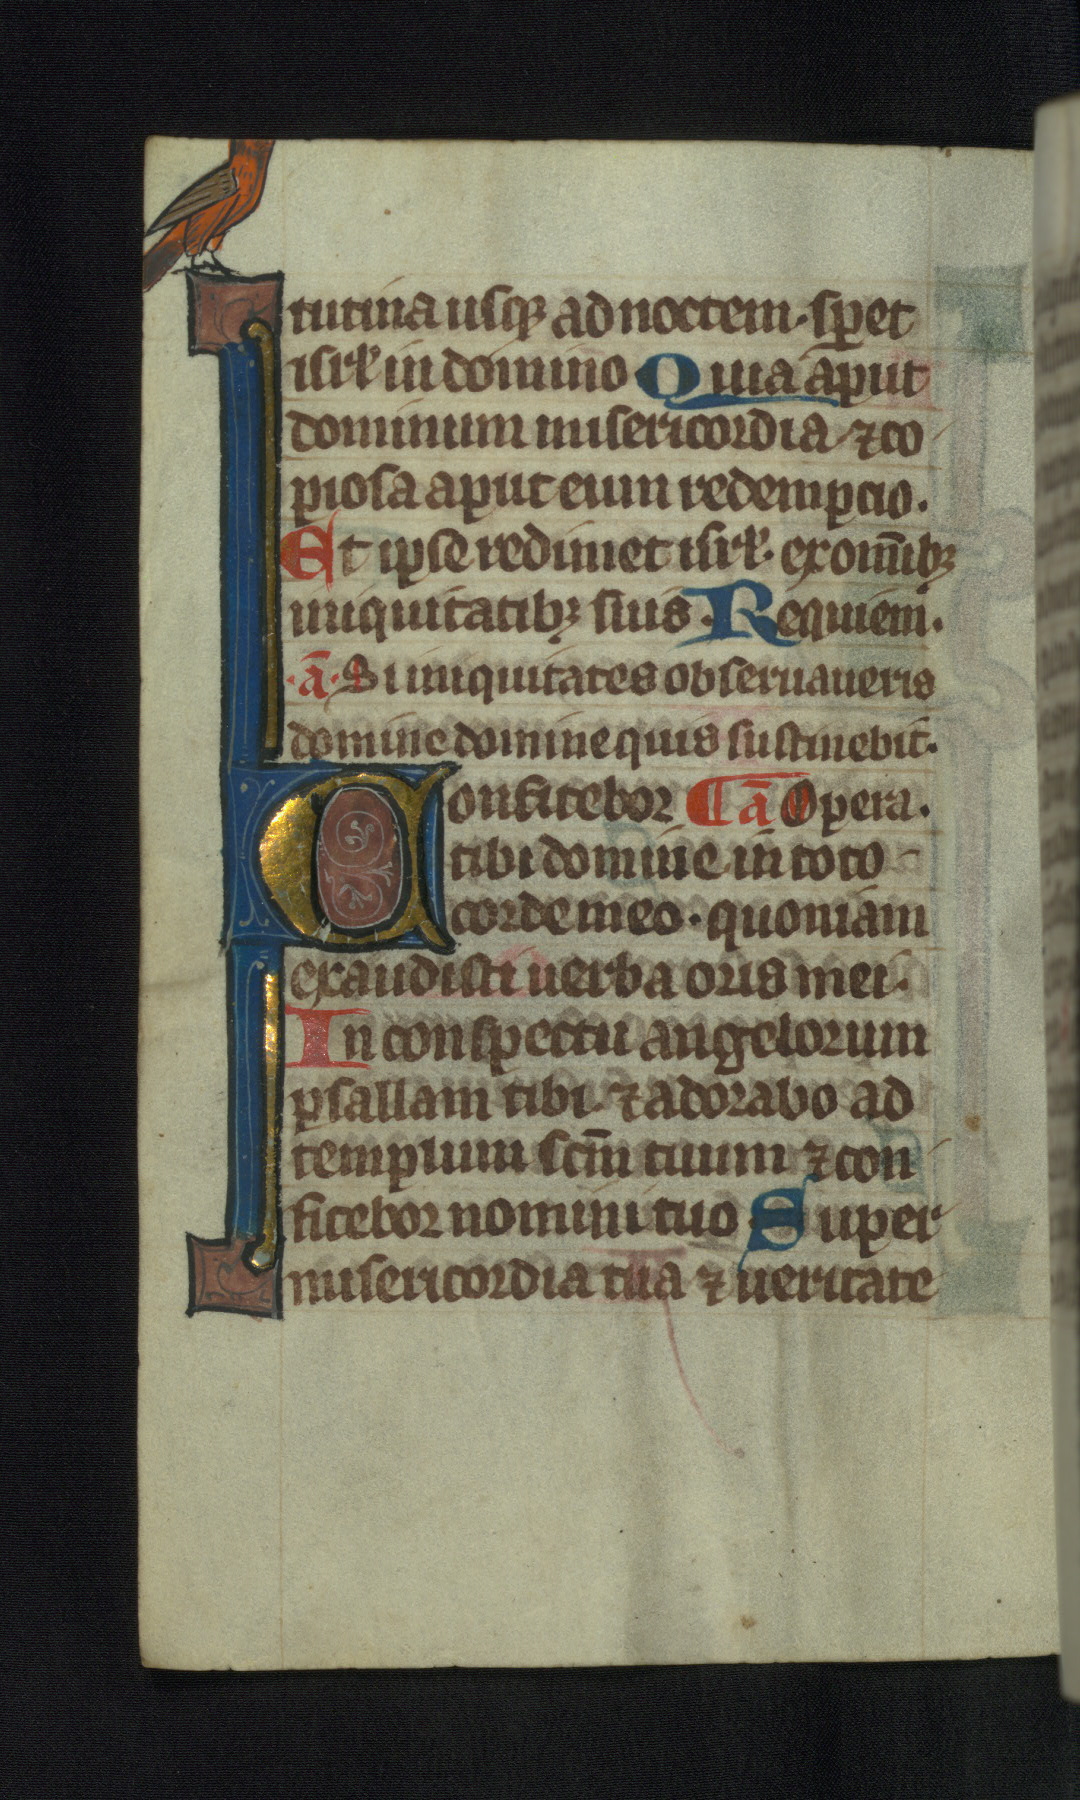 tutina usq; ad noctem· speret
isrl' in domino Quia aput
dominum misericordia ⁊ co
piosa aput eum redempcio.
Et ipse redimet isrl'· ex om̄ib;
iniquitatib; suis· Requiem.
·a̅· Si iniquitates obseruaueris
domine domine quis sustinebit.
Confitebor a̅ Opera.
tibi domine in toto
corde meo· quoniam
exaudisti uerba oris mei.
In conspectu angelorum
psallam tibi· ⁊ adorabo ad
templum sc̄m tuum ⁊ con
fitebor nomini tuo Super
misericordia tua ⁊ ueritate